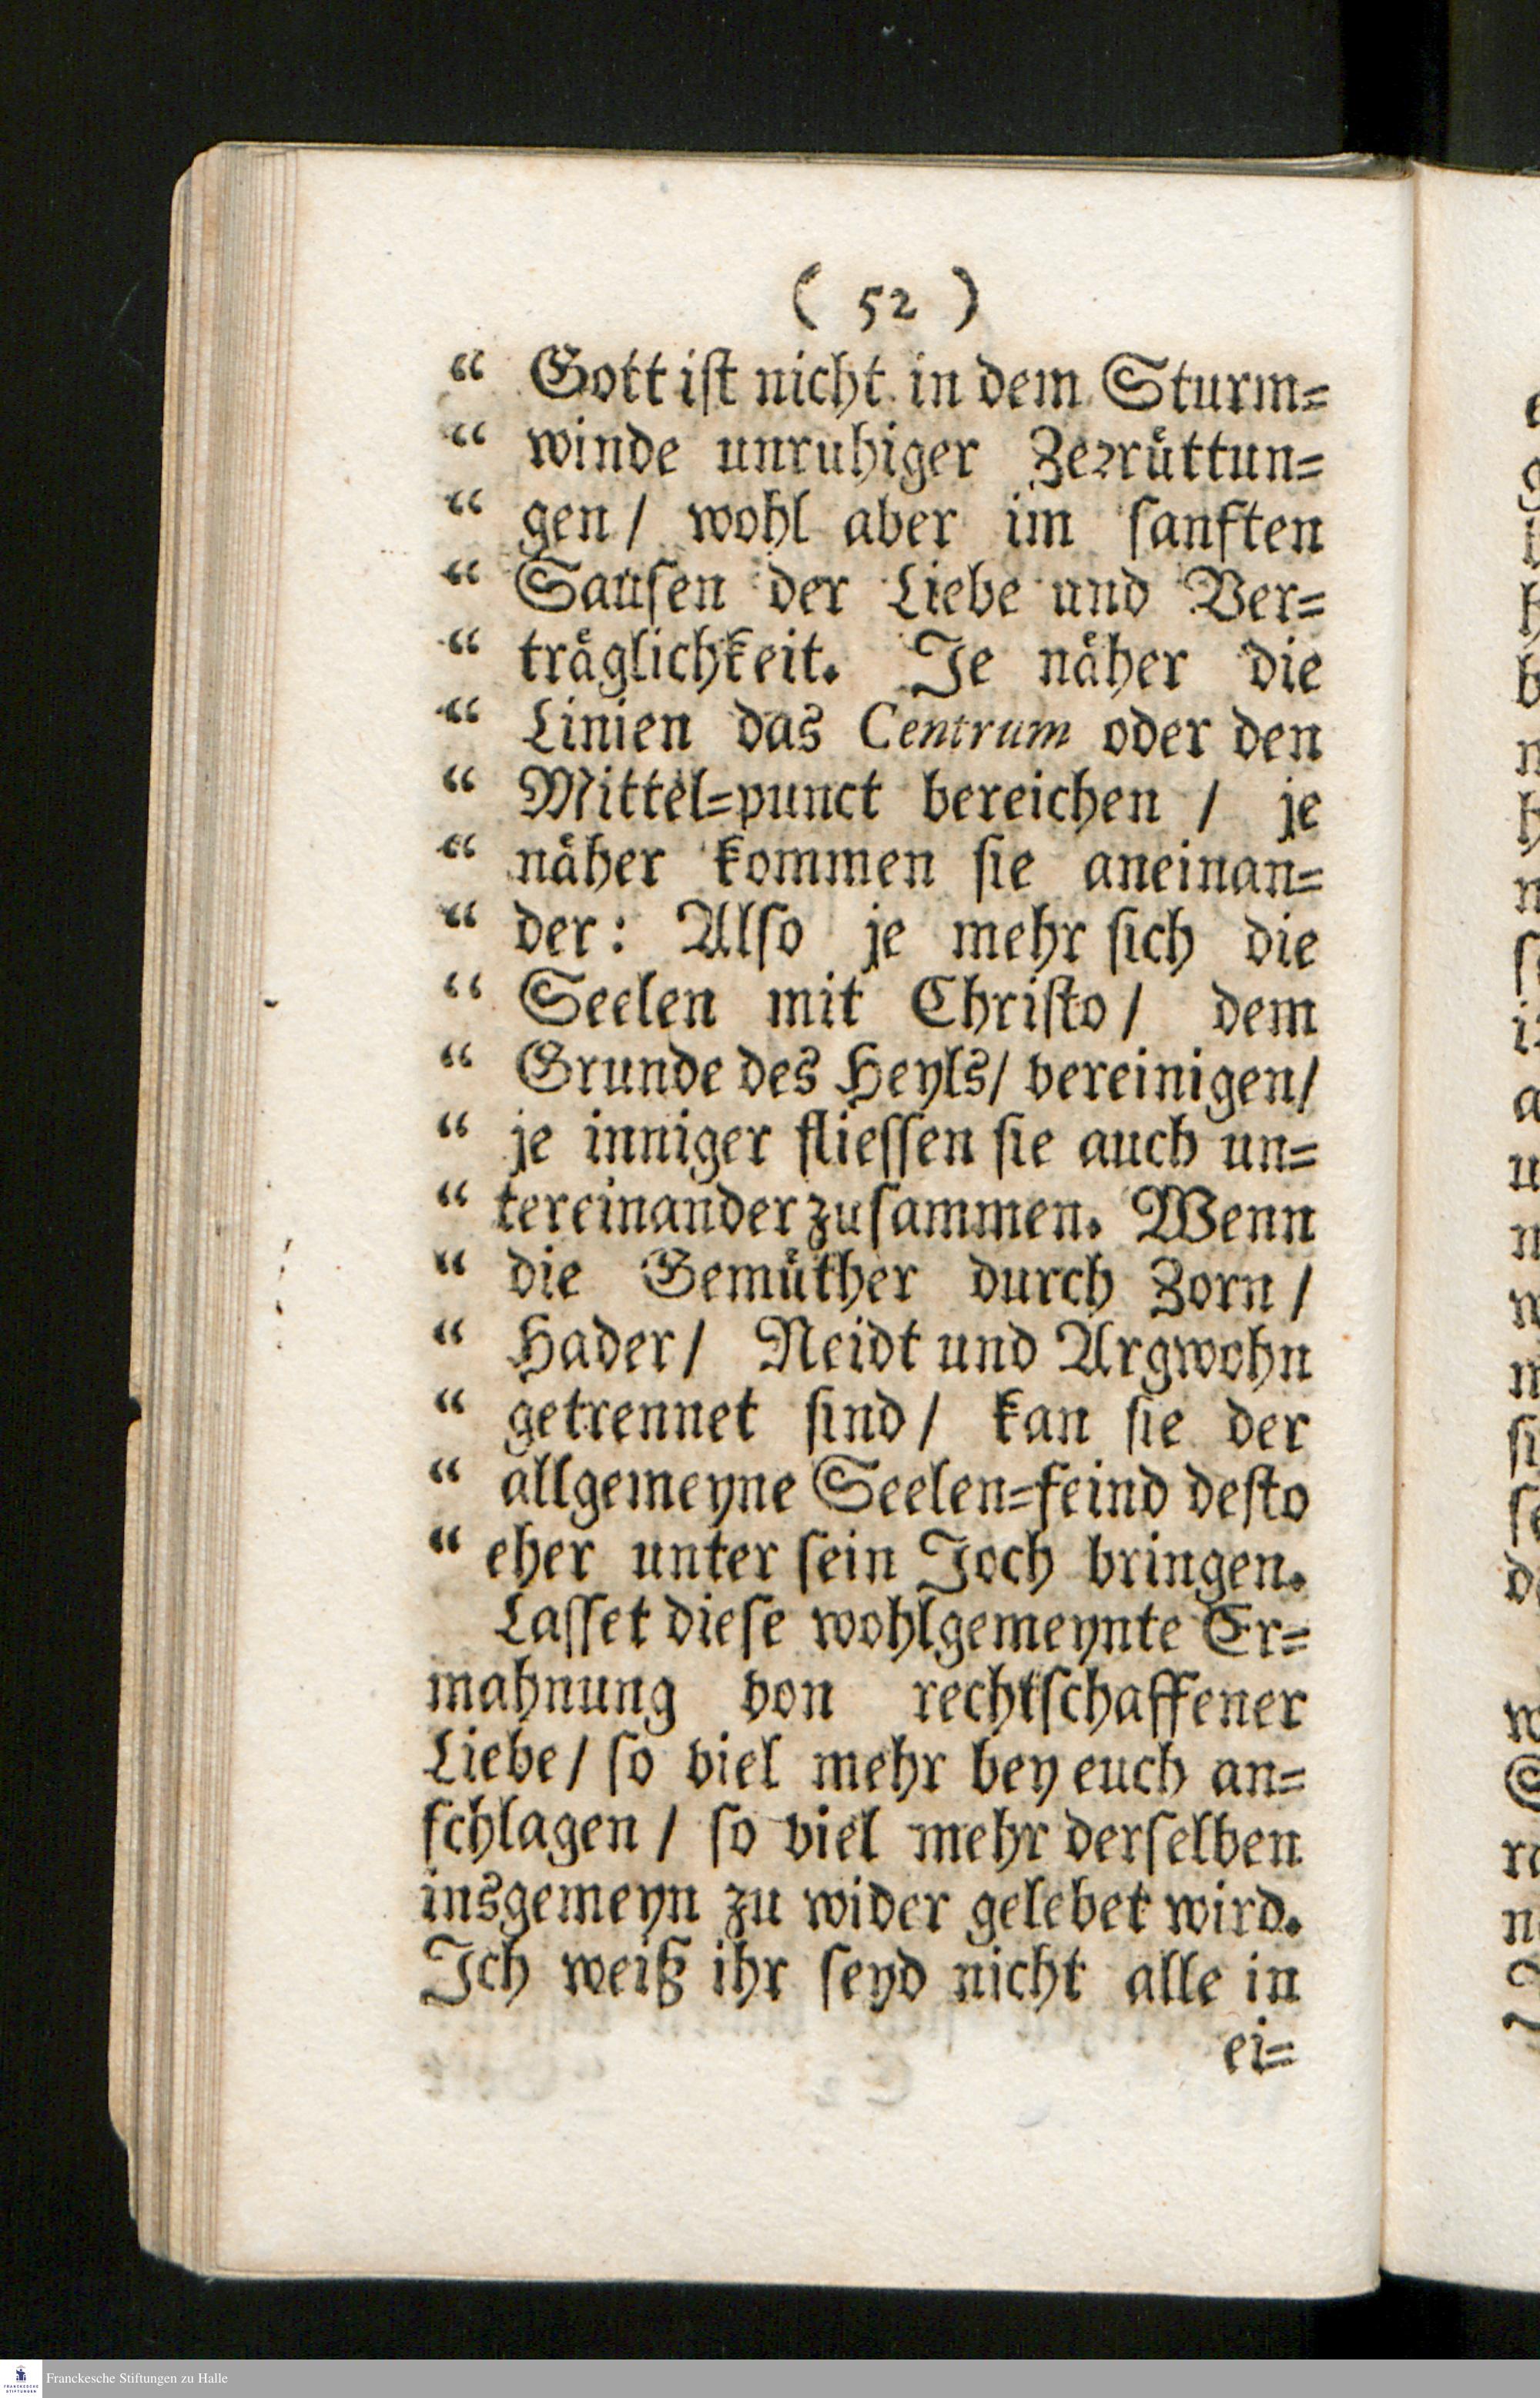 ( 52 )
“ Gott ist nicht in dem Sturm=
“ winde unruhiger Zeꝛrüttun=
“ gen / wohl aber im sanften
“ Sausen der Liebe und Ver=
“ träglichkeit. Je näher die
“ Linien das Centrum oder den
“ Mittel=punct bereichen / je
“ näher kommen sie aneinan=
“ der: Also je mehr sich die
“ Seelen mit Christo / dem
“ Grunde des Heyls / vereinigen /
“ je inniger fliessen sie auch un=
“ tereinander zusammen. Wenn
“ die Gemüther durch Zorn /
“ Hader / Neidt und Argwohn
“ getrennet sind / kan sie der
“ allgemeyne Seelen=feind desto
“ eher unter sein Joch bringen.
Lasset diese wohlgemeynte Er=
mahnung von rechtschaffener
Liebe / so viel mehr bey euch an=
schlagen / so viel mehr derselben
insgemeyn zu wider gelebet wird.
Ich weiß ihr seyd nicht alle in
ei=
Franckesche Stiftungen zu Halle